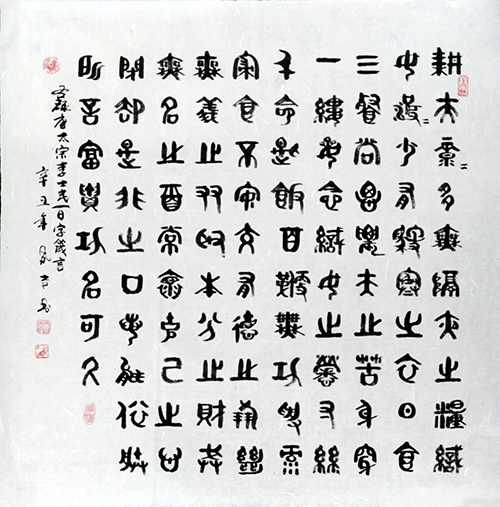 耕夫碌碌多無隔夜之糧織
女波波少有御寒之衣日食
三餐尚思農夫之苦身穿
一縷每念織女之勞寸絲
千命匙飯百鞭無功受祿
寢食不安交有德之朋絕
無義之友取本分之財戒
無名之酒常懷克己之心
閉却是非之口若能依朕
所言富貴功名可久
唐太宗李世民百字箴言
辛丑年